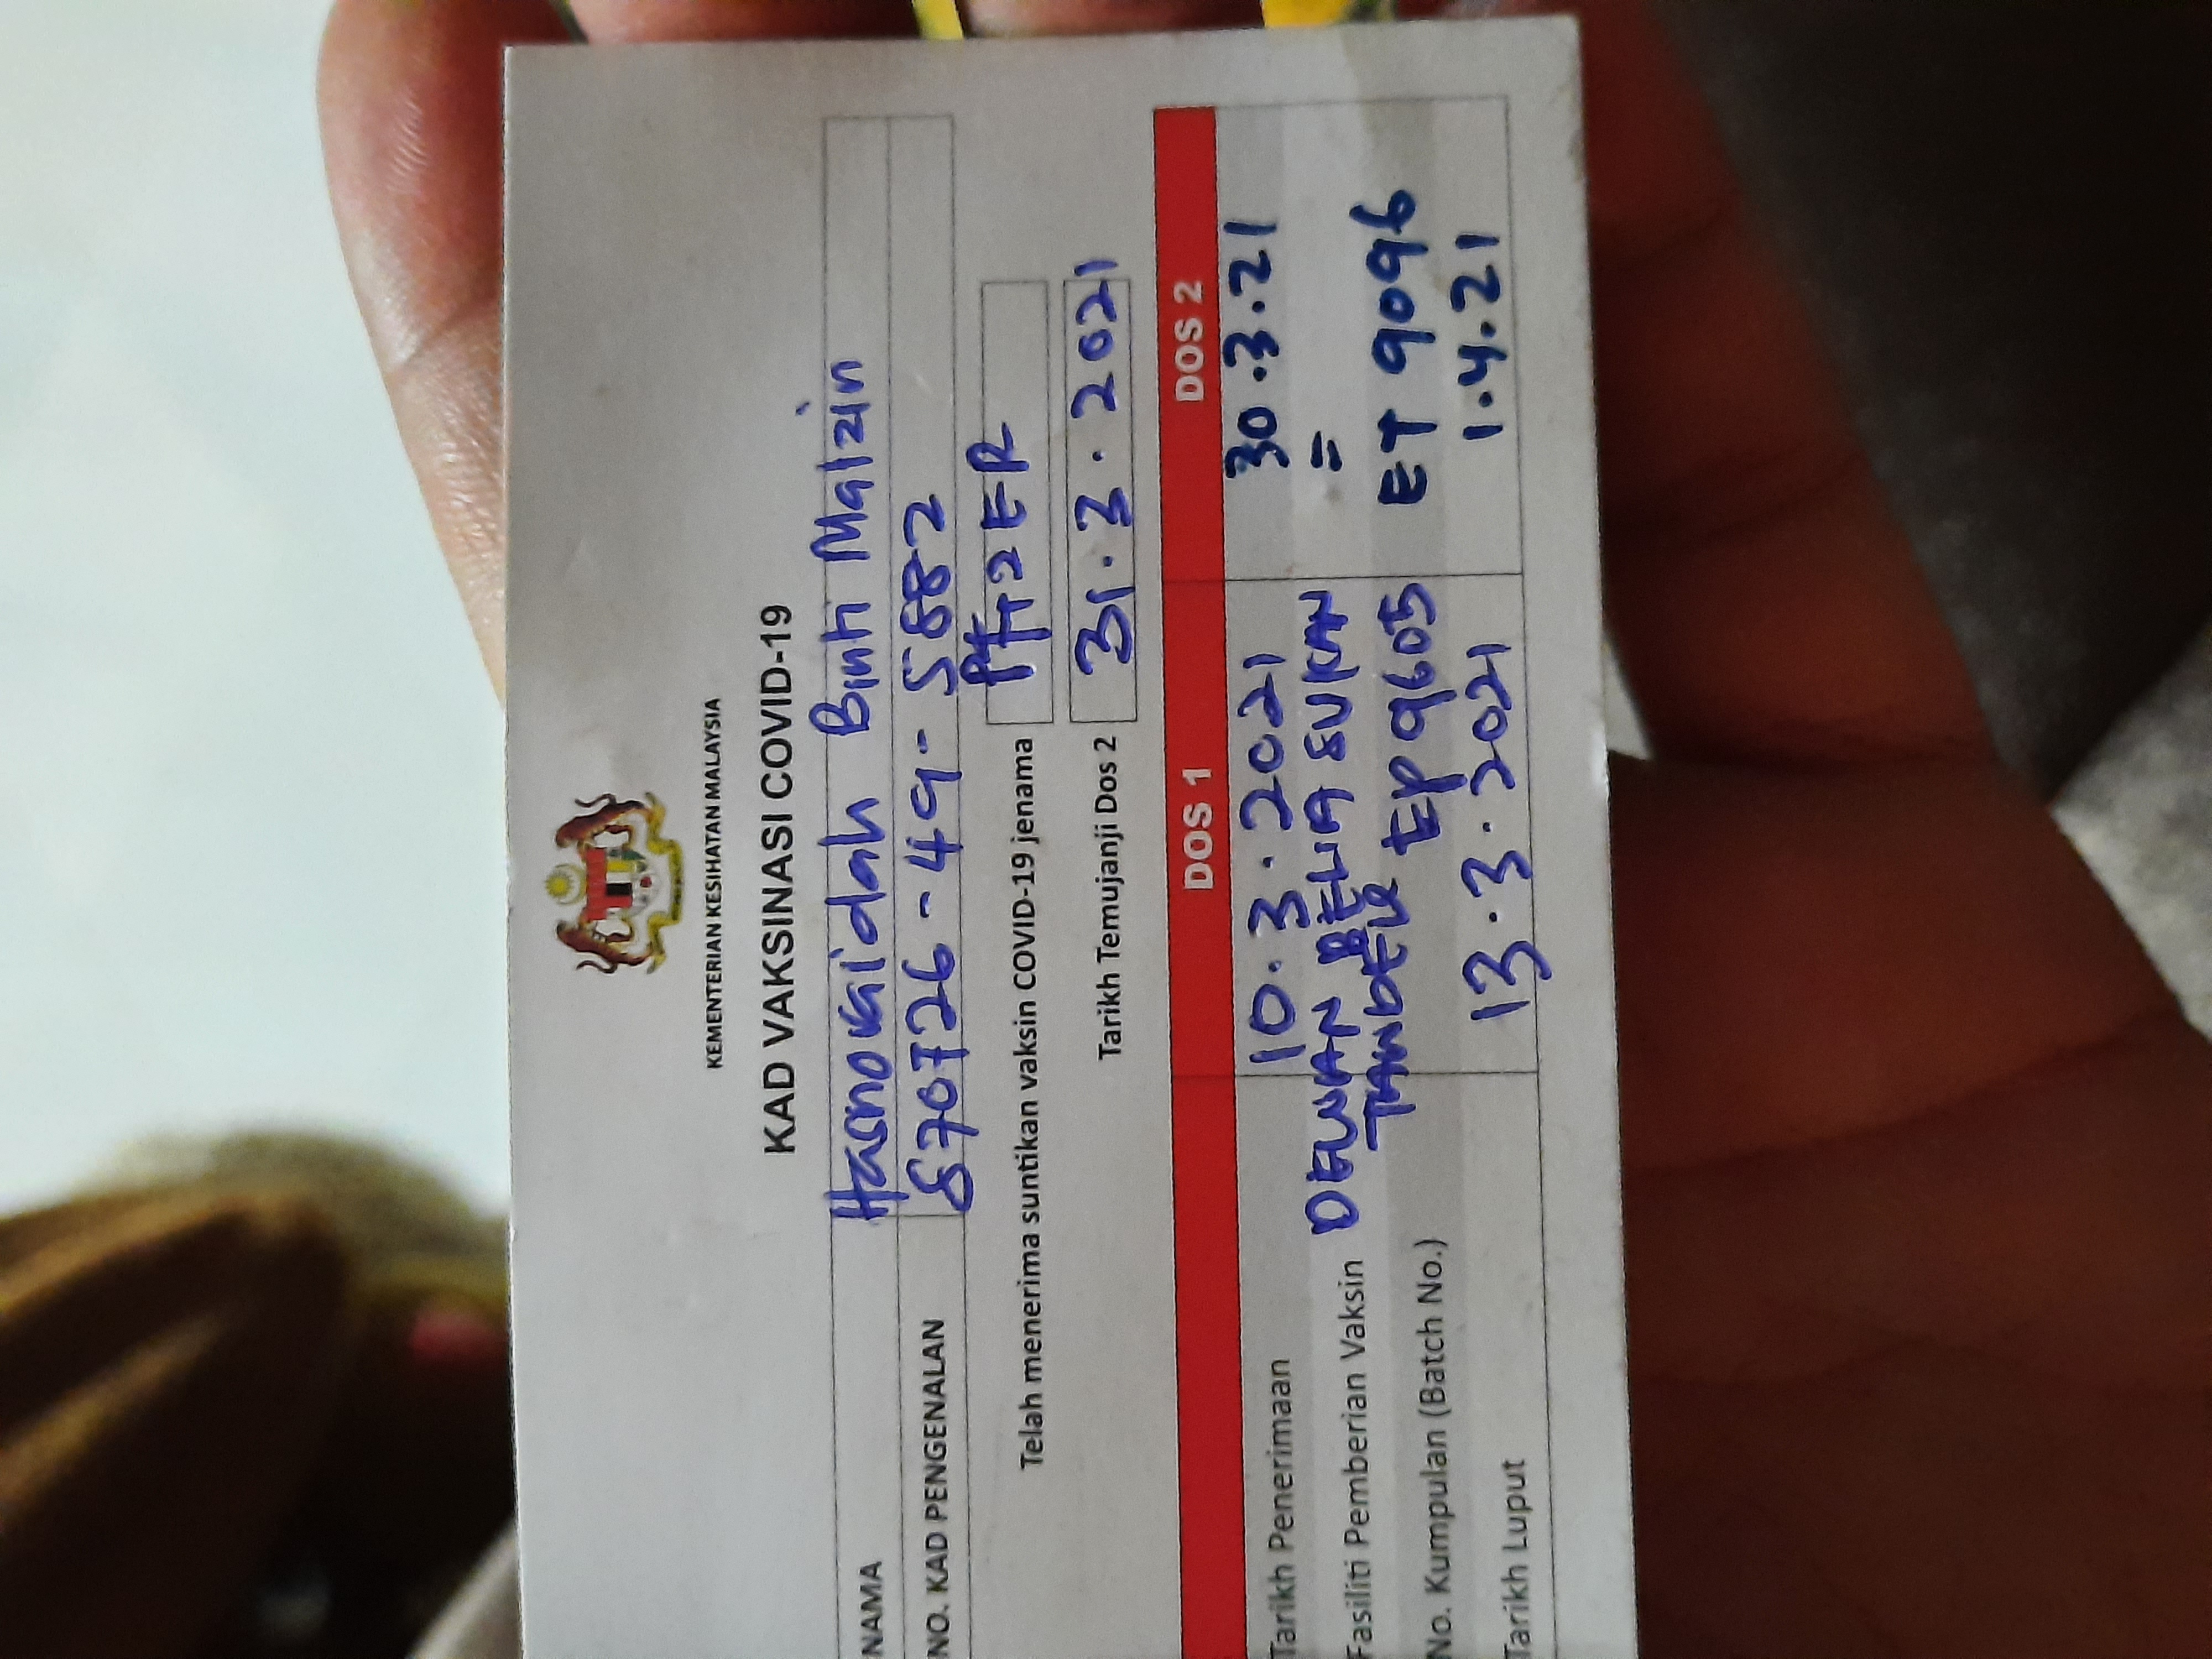 KEMENTERIAN KESIHATAN MALAYSIA
KAD VAKSINASI COVID-19
NAMA Hasnovaidah Binti Malzin
NO. KAD PENGENALAN 870726-49-5882
Telah menerima suntikan vaksin COVID-19 jenama PFIZER
Tarikh Temujanji Dos 2 31.3.2021
DOS 1 DOS 2
Tarikh Penerimaan 10.3.2021 30.3.21
Fasiliti Pemberian Vaksin DEWAN BELIA SUKAN =
No. Kumpulan (Batch No.) EP 9605 ET 9096
Tarikh Luput 13.3.2021 1.4.21